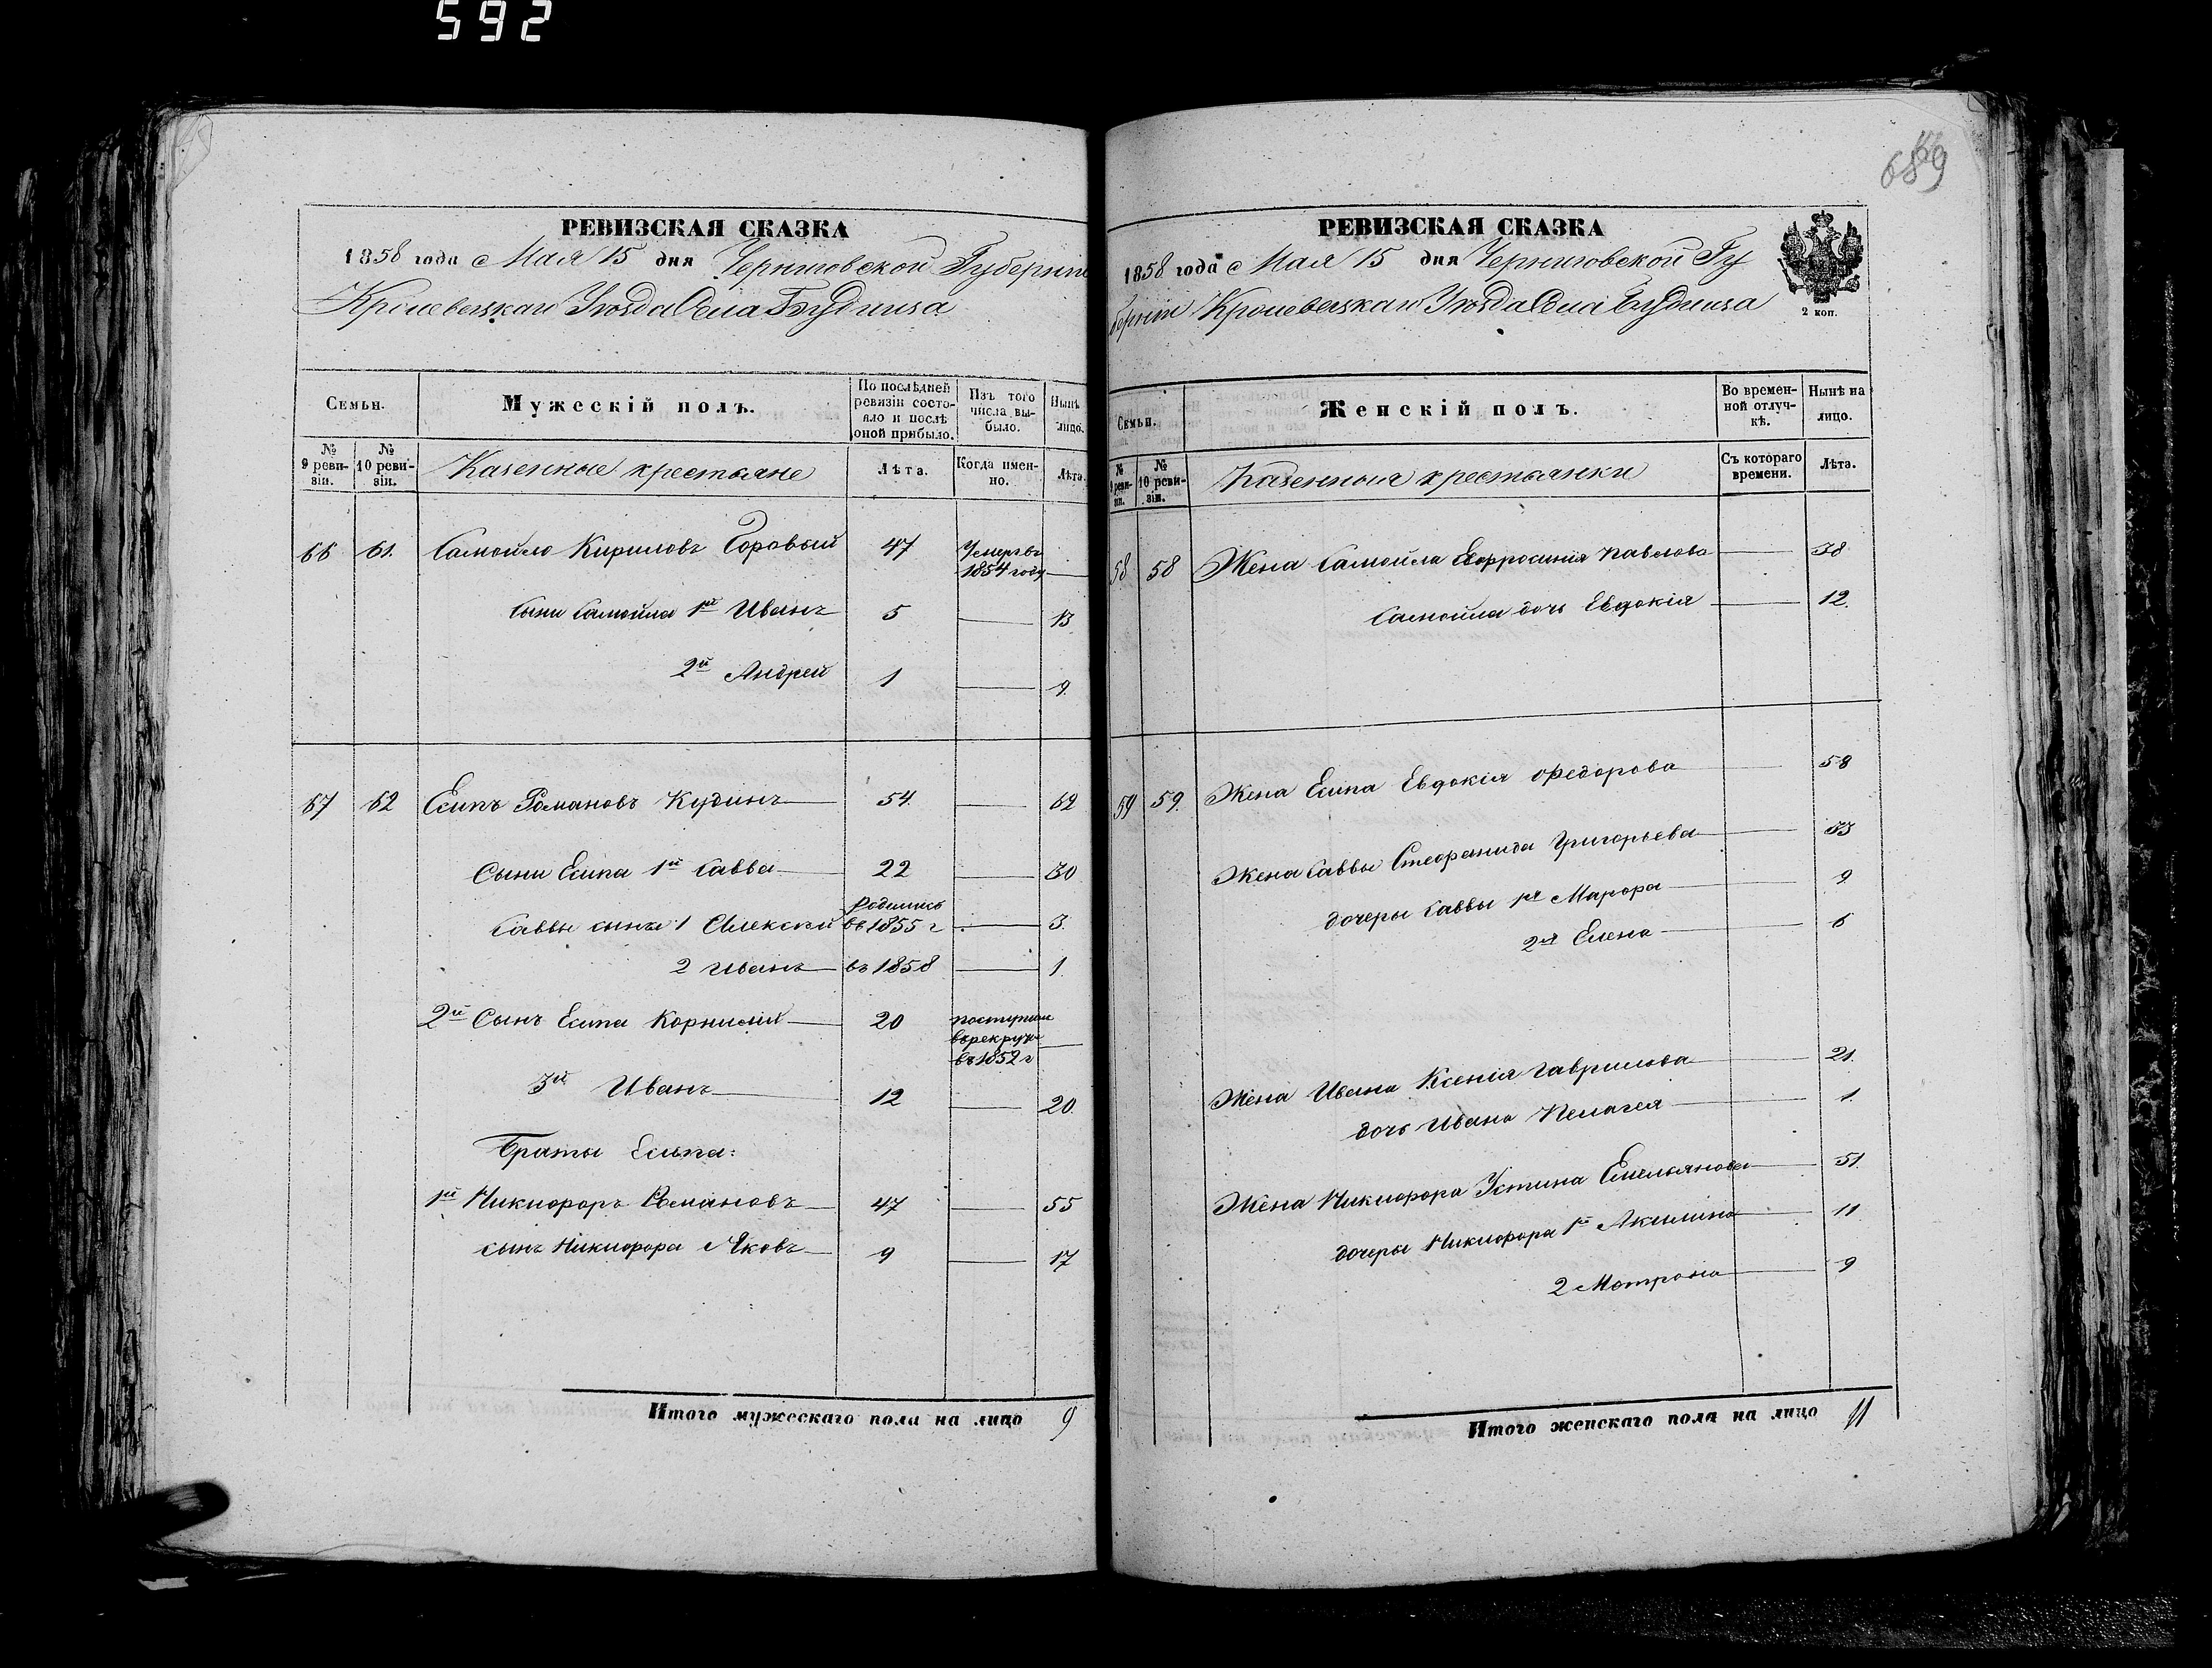 592
689
РЕВИЗСКАЯ СКАЗКА
1858 года Мая 15 дня Черниговской Губерніи
Кролевецкаго Уезда Села Будища
Семьи.
Мужескій полъ.
По послѣдней ревизіи состояло и послѣ оной прибыло.
Изъ того числа выбыло.
Нынѣ лицо.
№ 9 ревизіи.
№ 10 ревизіи.
Казенные крестьяне
Лѣта.
Когда именно.
Лѣта.
66 61. Самойло Кириловъ Боровый 47 Умеръ въ 1854 году
Сыни Самойла 1й Иванъ 5 13
2й Андрей 1 9.
67 62 Есипъ Романовъ Кудинъ 54. 62
Сыни Есипа 1й Савва 22 30
Саввы сыны 1 Алексѣй родились въ 1855 г 3.
2 Иванъ въ 1858 1.
2й Сынъ Есипа Корнилій 20 поступил въ рекруты въ 1852 г
3й Иванъ 12 20.
Браты Есипа:
1й Никифоръ Романовъ 47 55
сынъ Никифора Яковъ 9 17
Итого мужескаго пола на лицо 9
РЕВИЗСКАЯ СКАЗКА
1858 года Мая 15 дня Черниговской Гу
берніи Кролевецкаго Уезда Села Будища
2 коп.
Семьи.
Женскій полъ.
Во временной отлучкѣ.
Нынѣ на лицо.
№ 9 ревизіи.
№ 10 ревизіи.
Казенныя крестьянки
Съ котораго времени.
Лѣта.
58 58 Жена Самойла Евфросинія Павлова 38
Самойла дочь Евдокія 12.
59 59. Жена Есипа Евдокія Федорова 58
Жена Саввы Стефанида Григорьева 33
дочеры Саввы 1я Марфа 9
2я Елена 6
Жена Ивана Ксенія Гаврилова 21.
дочь Ивана Пелагея 1.
Жена Никифора Устина Емельянова 51.
дочеры Никифора 1я Акилина 11
2 Мотрона 9
Итого женскаго пола на лицо 11